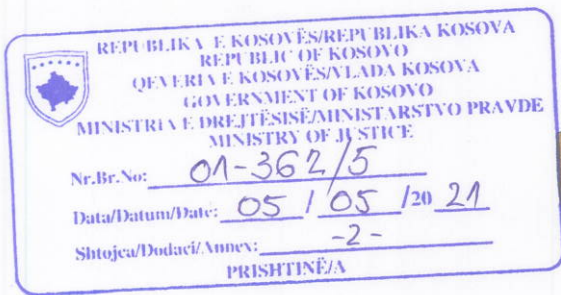 REPUBLIKA E KOSOVËS/REPUBLIKA KOSOVA
REPUBLIC OF KOSOVO
QEVERIA E KOSOVËS/VLADA KOSOVA
GOVERNMENT OF KOSOVO
MINISTRIA E DREJTËSISË/MINISTARSTVO PRAVDE
MINISTRY OF JUSTICE
Nr.Br.No: 01-362/5
Data/Datum/Date: 05 / 05 /20 21
Shtojca/Dodaci/Annex: -2-
PRISHTINË/A